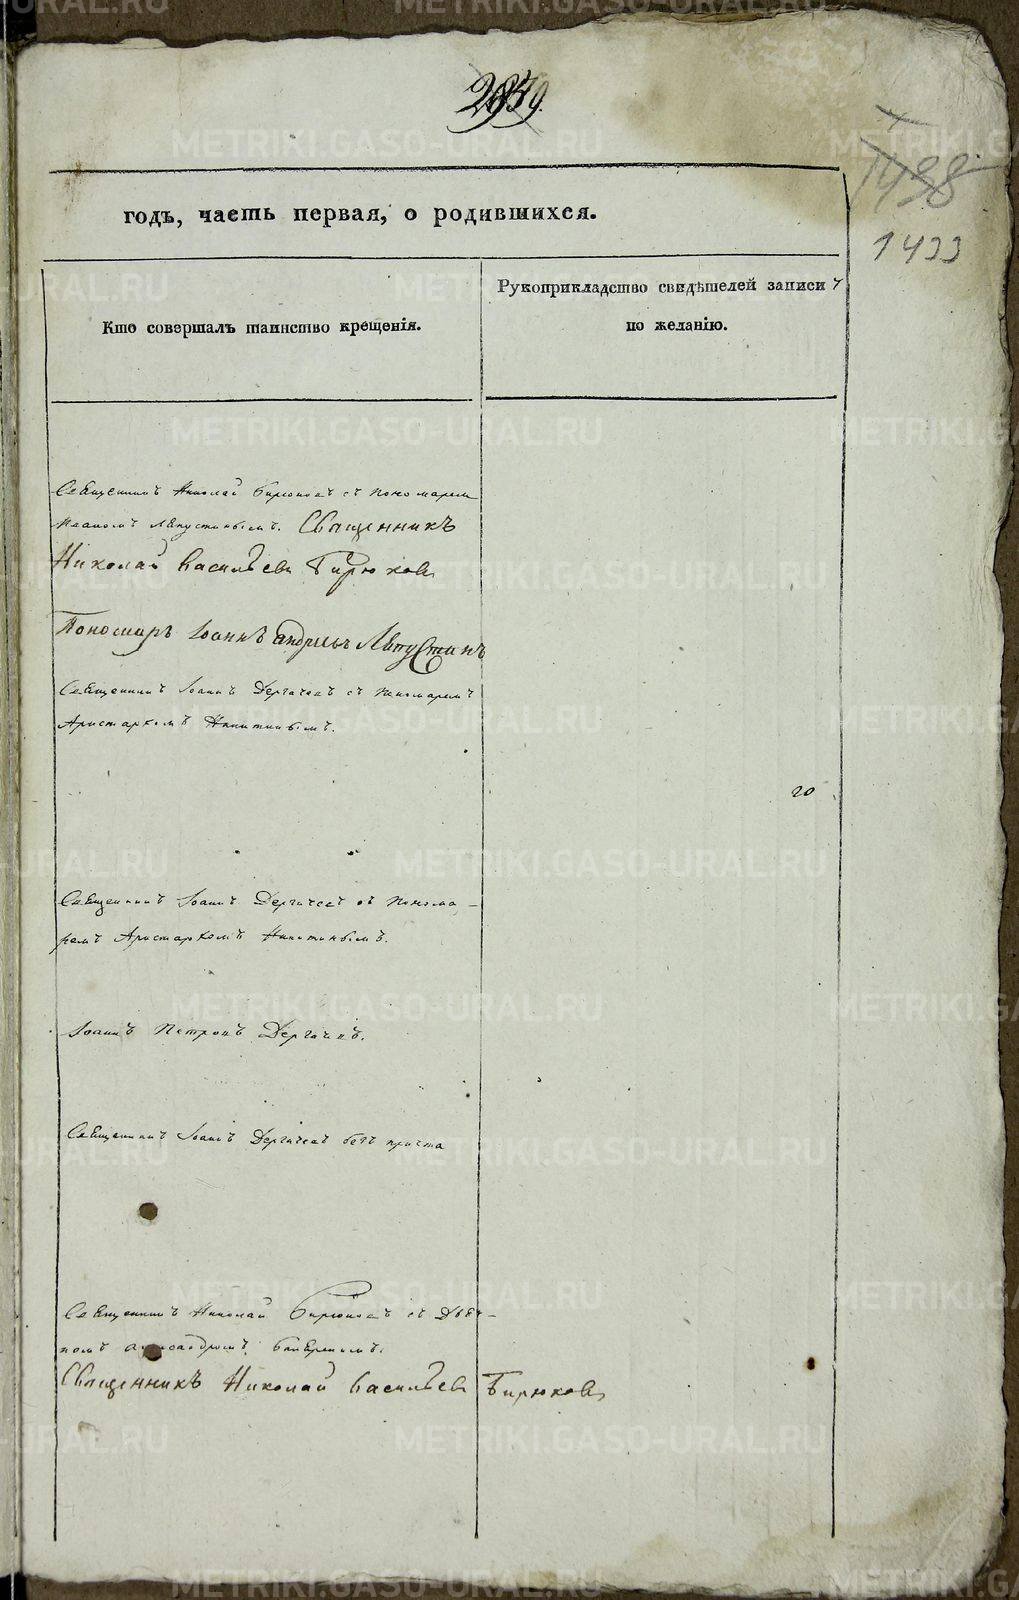 1433
годъ, часть первая, о родившихся.
Кто совершалъ таинство крещенія.
Рукоприкладство свидѣтелей записи
по желанію.
Священникъ Николай Бирюковъ съ пономаремъ
Иваномъ Лѣпустинымъ. Священникъ
Николай Васильевъ Бирюковъ
Пономарь Іоаннъ Андреевъ
Священникъ Іоаннъ Дергачевъ съ пономаремъ
Аристархомъ Никитинымъ.
20
Священникъ Іоаннъ Дергачевъ съ понома-
ремъ Аристархомъ Никитинымъ.
Іоаннъ Петровъ Дергачевъ.
Священникъ Іоаннъ Дергачевъ безъ причта
Священникъ Николай Бирюковъ съ Дьяч-
комъ
Священникъ Николай Васильевъ Бирюковъ
METRIKI.GASO-URAL.RU